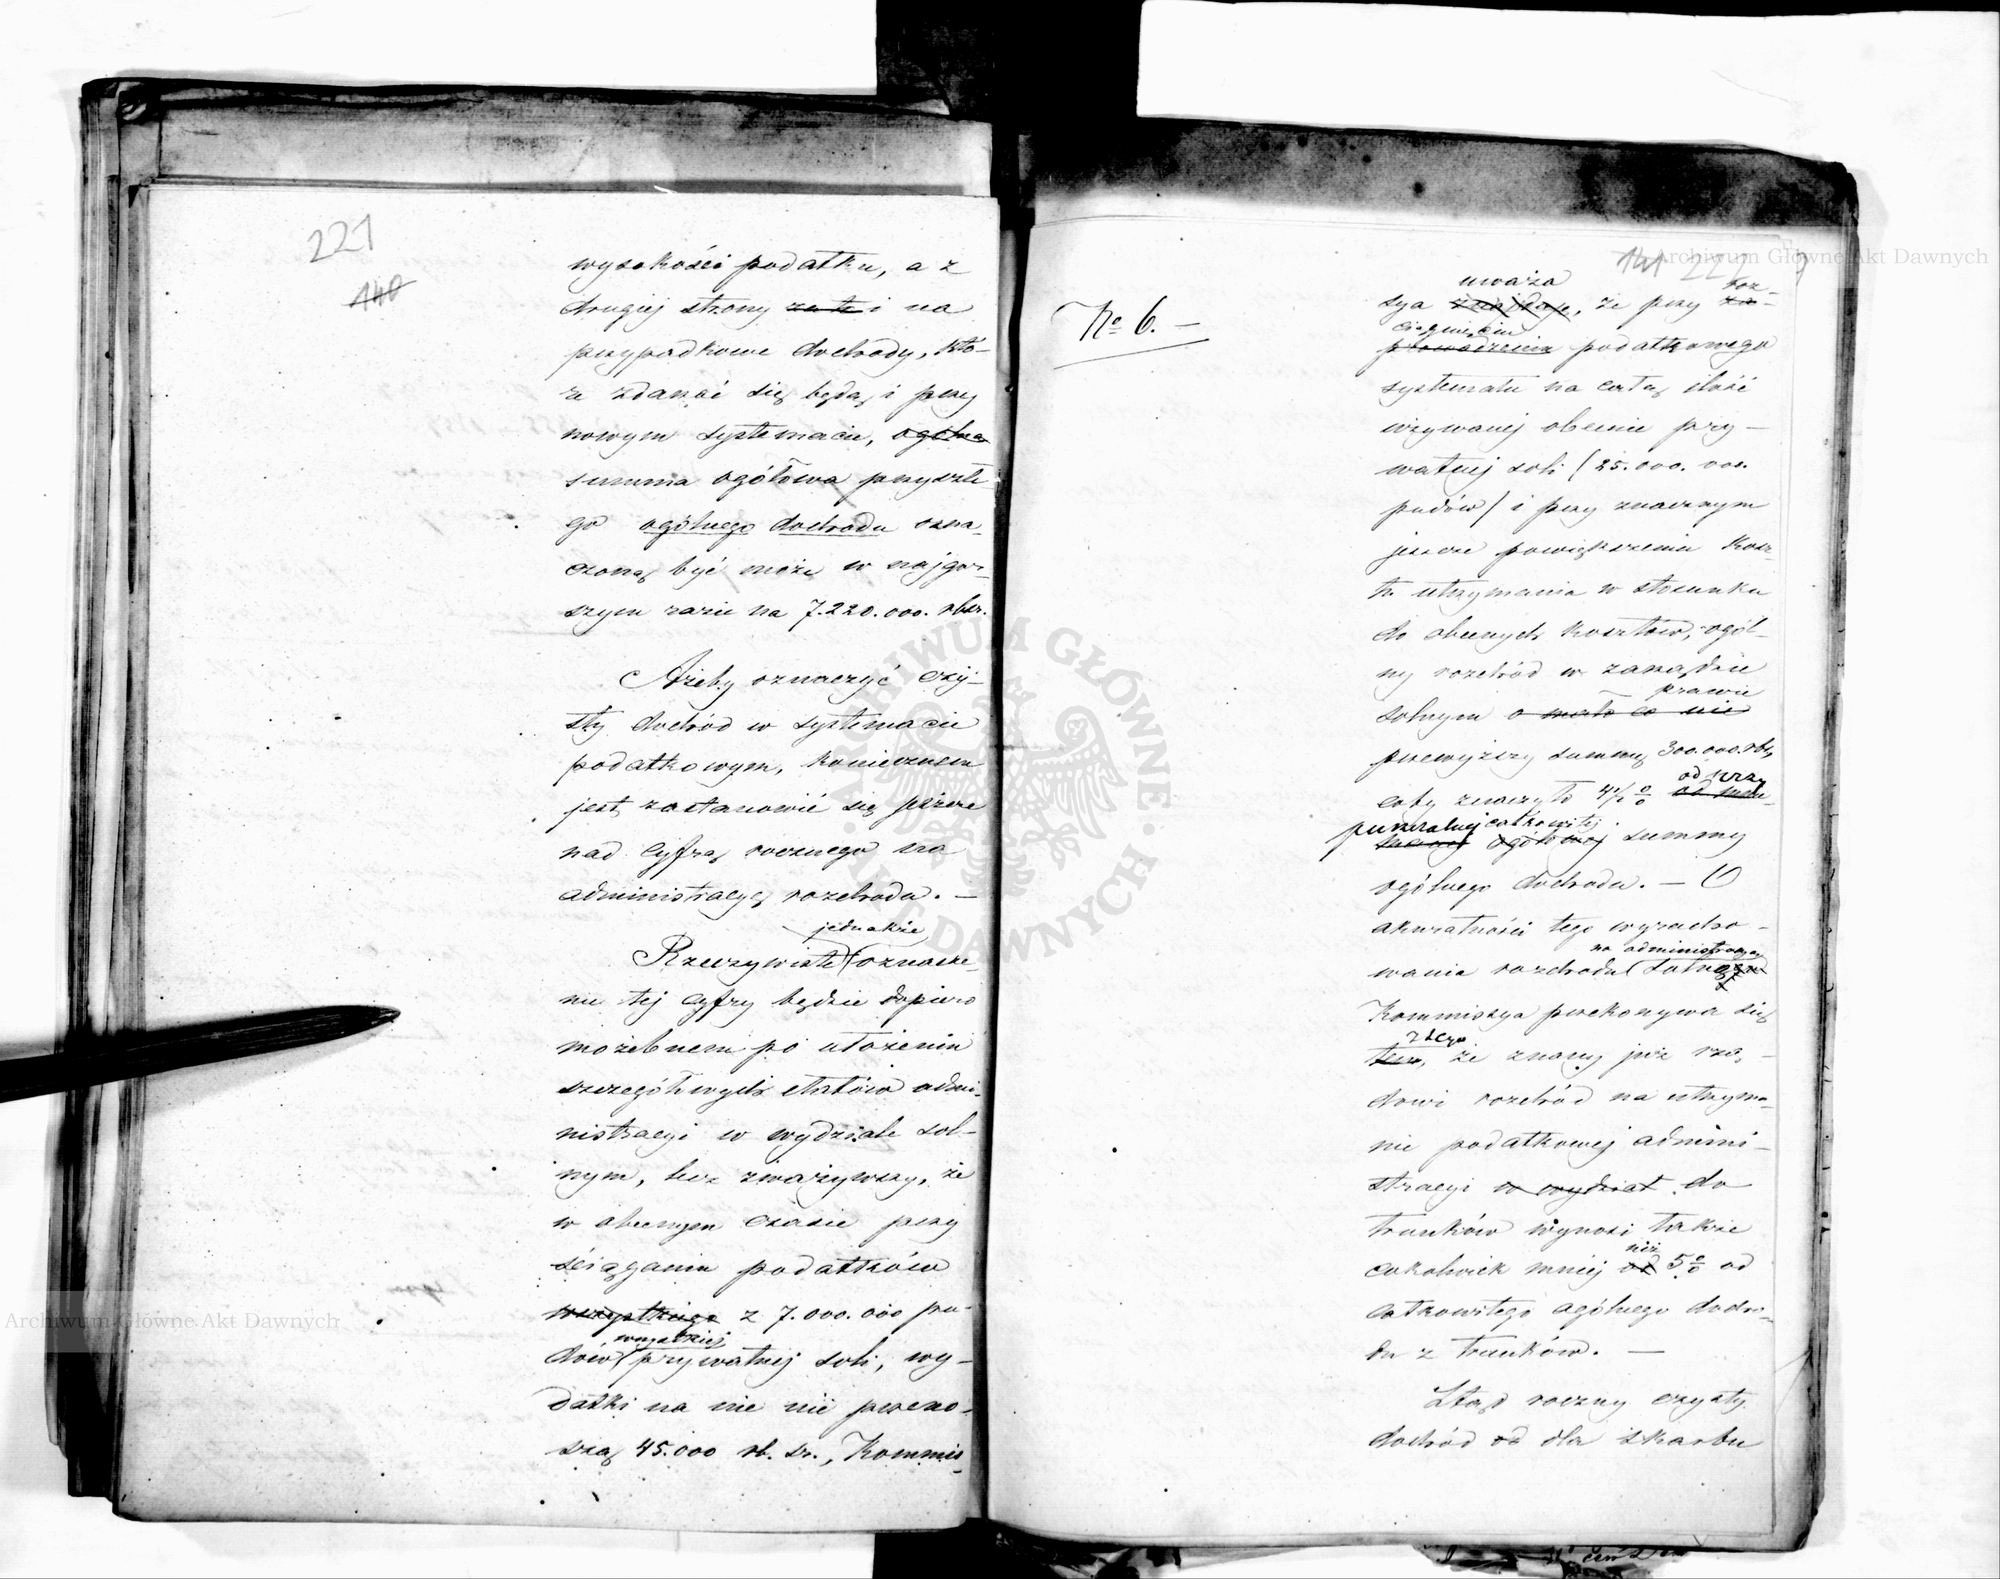 221
140
wysokości podatku, a z
drugiej strony za te i na
przypadkowe dochody, któ-
re zdarzać się będą i przy
nowym systemacie, ogólna
summa ogółowa przyszłe-
go ogólnego dochodu ozna-
czoną być może w najgor-
szym razie na 7.220.000. rbsr.
Ażeby oznaczyć czy-
sty dochód w systemacie
podatkowym, koniecznem
jest zastanowić się jeszcze
nad cyfrą rocznego na
administracyę rozchodu. —
jednakże
Rzeczywiste oznacze-
nie tej cyfry będzie dopiero
możebnem po ułożeniu
szczegółowych etatów admi-
nistracyi w wydziale sol-
nym, lecz zważywszy, że
w obecnym czasie przy
ściąganiu podatków
wszystkiego z 7.000.000 pu-
wszelkiej
dów prywatnej soli, wy-
datki na nie nie przeno-
szą 45.000 rb. sr., Kommis-
141 222
No 6. —
uważa
roz-
sya znajduje, że przy za-
ciągnięciu
prowadzeniu podatkowego
systematu na całą ilość
używanej obecnie pry-
watnej soli (25.000.000.
pudów) i przy znacznym
jeszcze powiększeniu kosz-
tu utrzymania w stosunku
do obecnych kosztów, ogól-
ny rozchód w zarządzie
prawie
solnym o mało co nie
przewyższy summę 300.000. rbs,
od przy
coby znaczyło 4% od
puszczalnej całkowitej
ogółowej summy
ogólnego dochodu. — O
akuratności tego wyracho-
na administracyą
wania rozchodu solną
Kommissya przekonywa się
z tego
tem, że znany już rzą-
dowi rozchód na utrzyma-
nie podatkowej admini-
stracyi w wydział do
trunków wynosi także
niż
cokolwiek mniej od 5% od
całkowitego ogólnego docho-
du z trunków. —
Ztąd roczny czysty
dochód od dla skarbu
Archiwum Główne Akt Dawnych
Archiwum Główne Akt Dawnych
ARCHIWUM GŁÓWNE AKT DAWNYCH